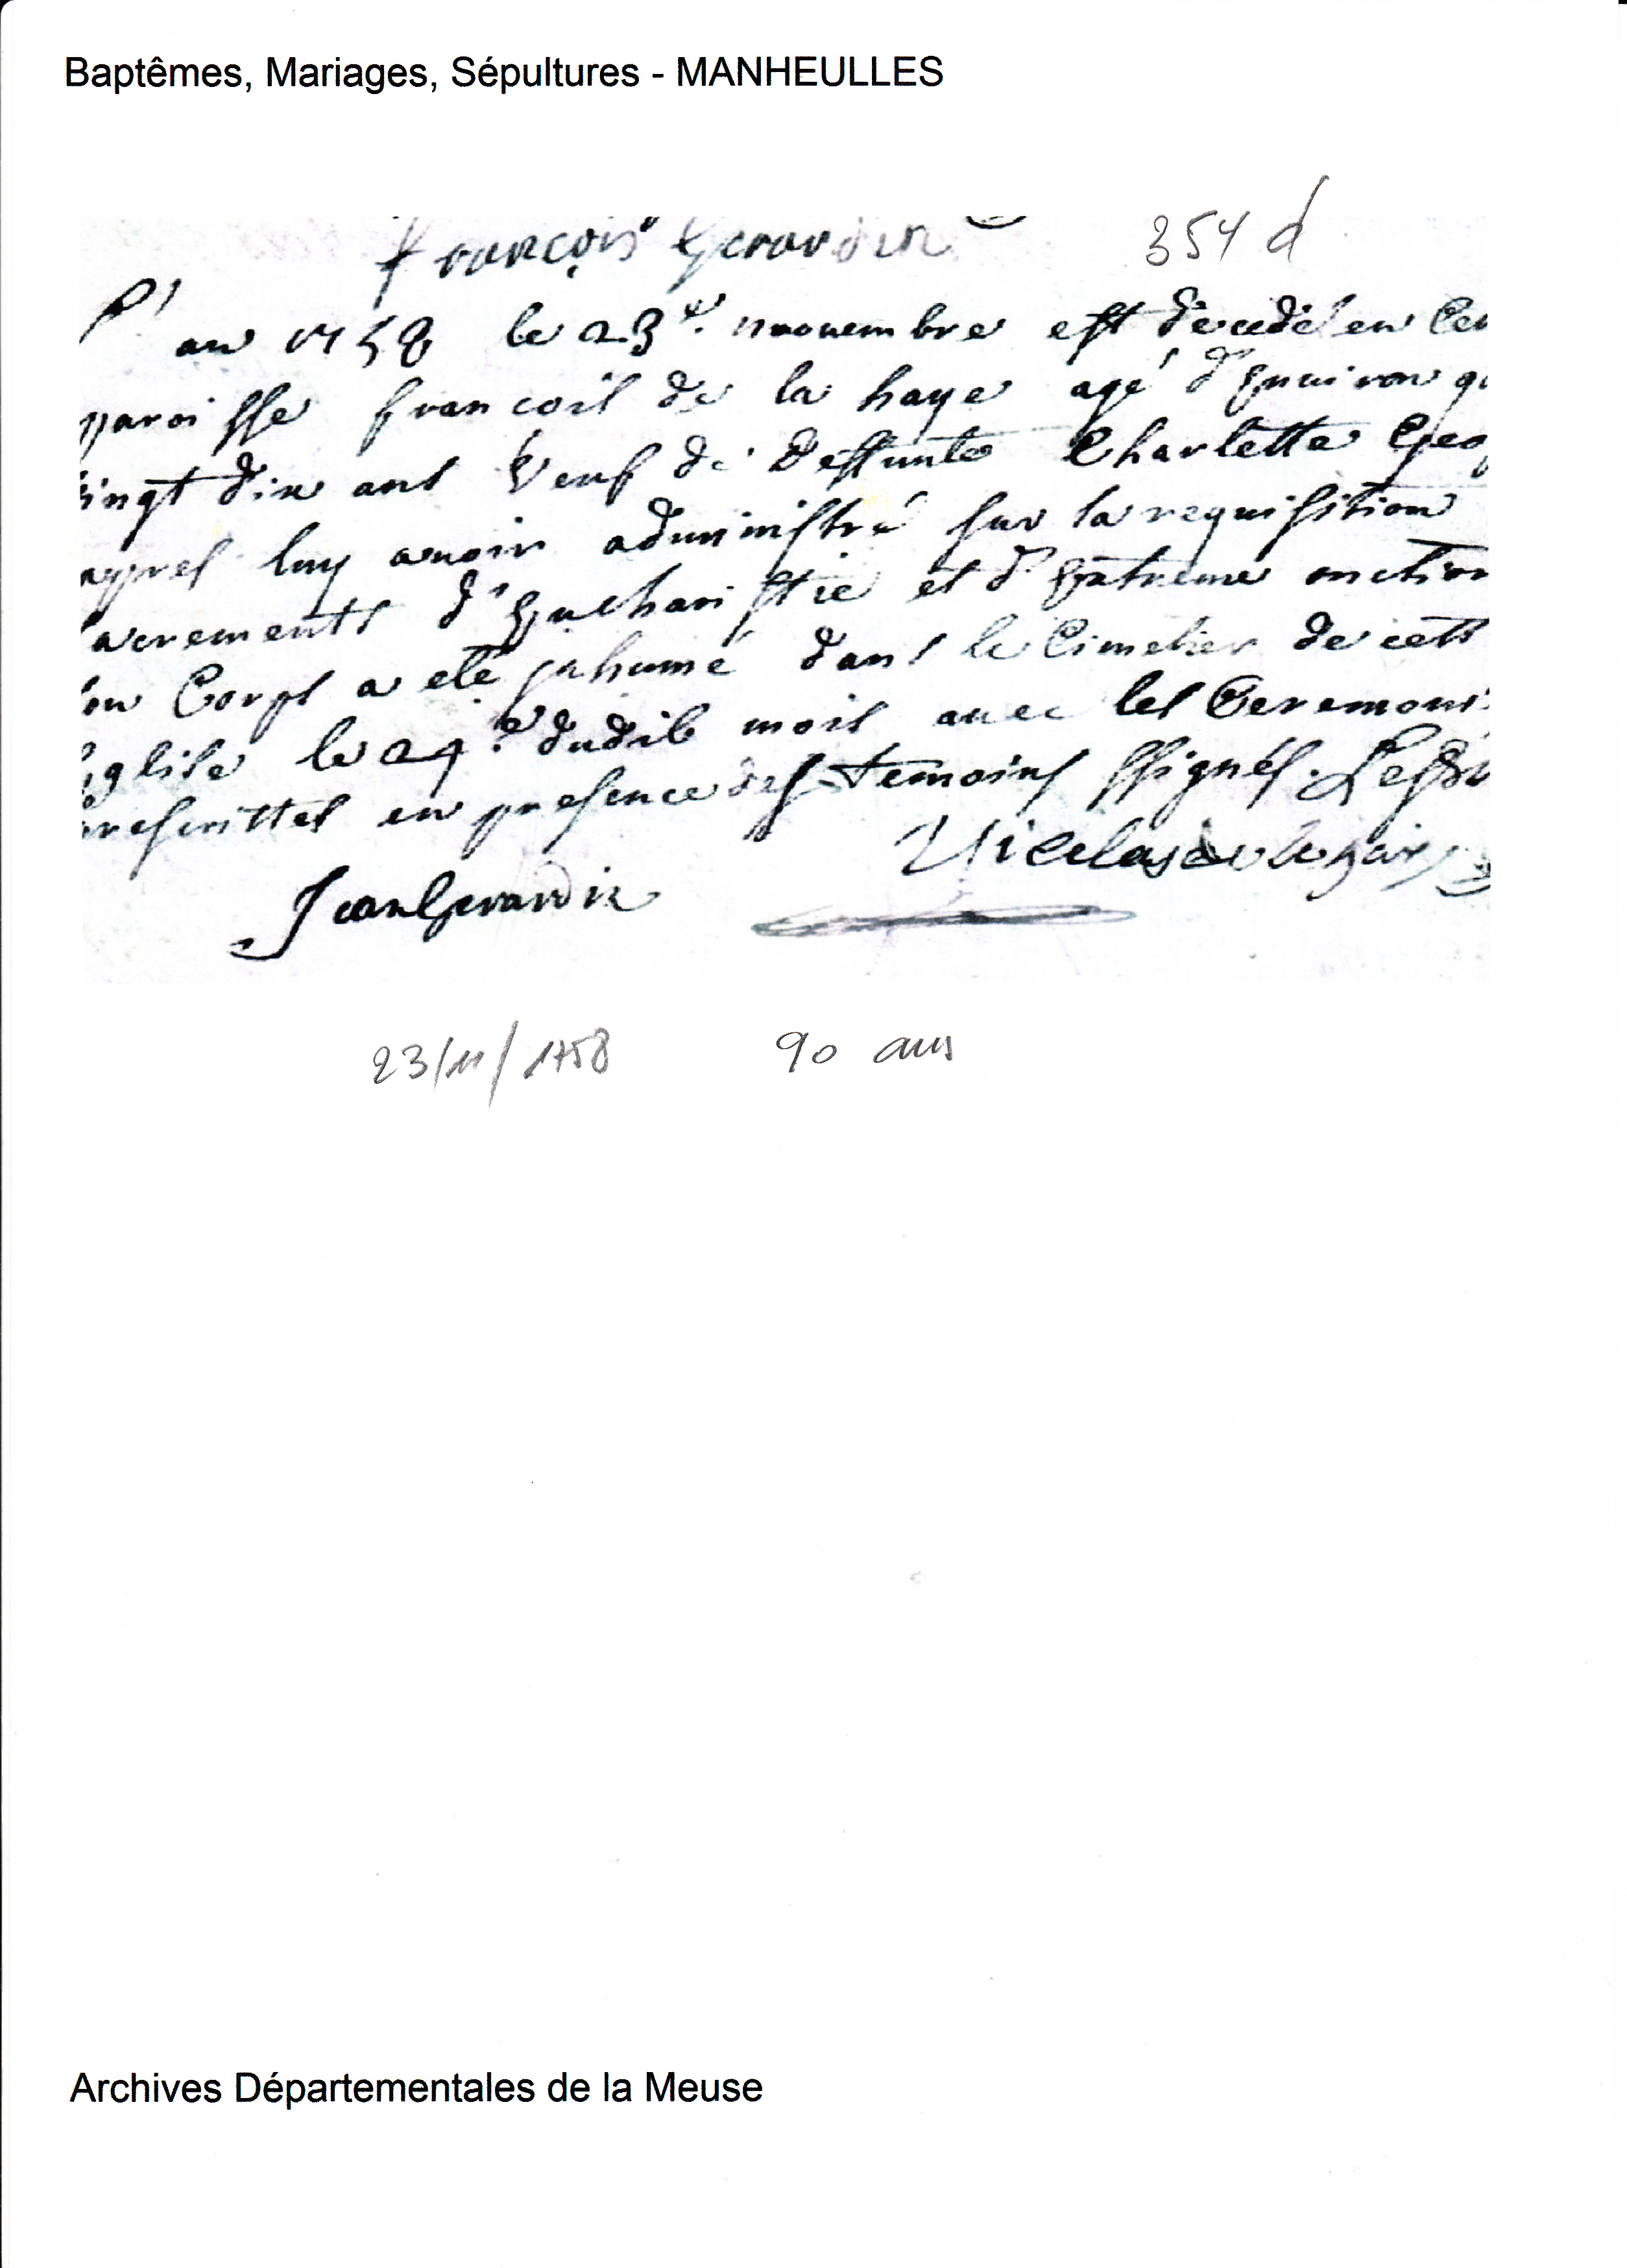 Baptêmes, Mariages, Sépultures - MANHEULLES
354 d
françois Gerardin
L'
an 1758 le 23e. nouembre est decedé en Cet
paroisse francois de la haye agé d'Enuiron q
vingt dix ans Veuf de Deffunte Charlette Geo
apres luy auoir administré sur la requisition
sacrements d'Euchari stie et d'Extreme onction
son Corps a eté jnhumé dans le Cimetier de cett
Eglise le 24e dudit mois auec les Ceremoni
prescrittes en presence des temoins ssignés.
Nicolas
Jean Gerardin
23/11/1758 90 ans
Archives Départementales de la Meuse